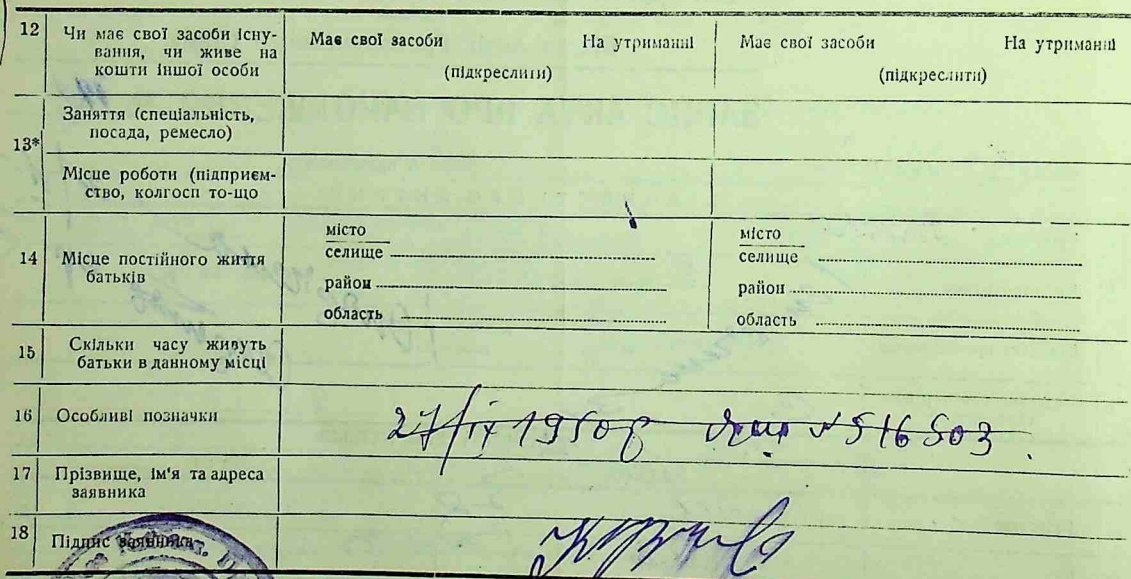 12 Чи має свої засоби існу- Має свої засоби На утриманні Має свої засоби На утриманні
вання, чи живе на
кошти іншої особи (підкреслити) (підкреслити)
Заняття (спеціальність,
посада, ремесло)
13*
Місце роботи (підприєм-
ство, колгосп то-що
14 Місце постійного життя батьків
місто
селище
район
область
місто
селище
район
область
15 Скільки часу живуть
батьки в данному місці
16 Особливі позначки 27/IX 1950р 516503
17 Прізвище, ім'я та адреса
заявника
18 Підпис заявника